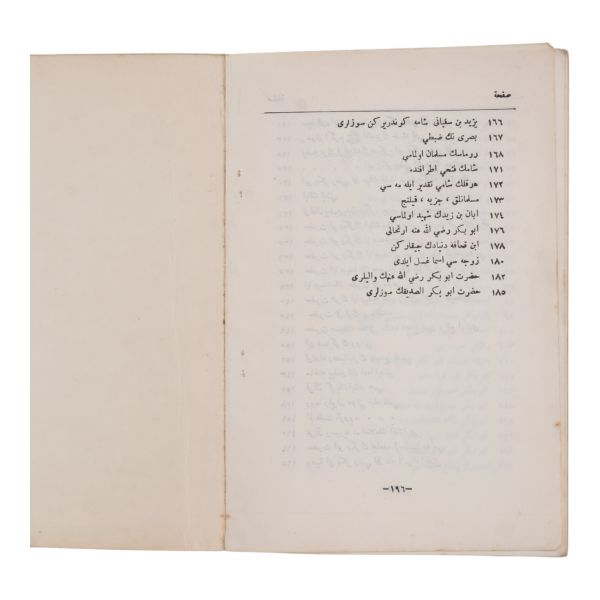 صفحة
١٦٦ يزيد بن سفيانى شامه كوندريركن سوزلرى
١٦٧ بصرى نك ضبطى
١٦٨ روماسك مسلمان اولمامى
١٧١ شامك فتحى اطرافنده
١٧٢ هرقلك شامى تقدير ايله مه سى
١٧٣ مسلمانلق ، جزيه ، قيلنج
١٧٤ ابان بن زيدك شهيد اولماسى
١٧٦ ابو بكر رضي الله عنه ارتحالى
١٧٨ ابن قحافة دنيادك چيقاركن
١٨٠ زوجه سى اسما غسل ايلدى
١٨٢ حضرت ابو بكر رضي الله عنهك واليلرى
١٨٥ حضرت ابو بكر الصديقك سوزلرى
—١٩٦—